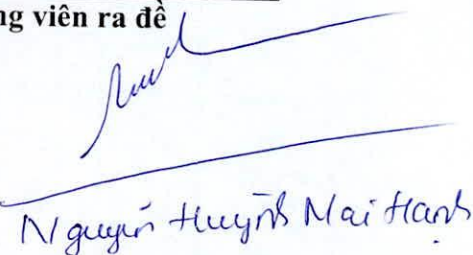 ng viên ra đề
Nguyễn Huỳnh Mai Hạnh